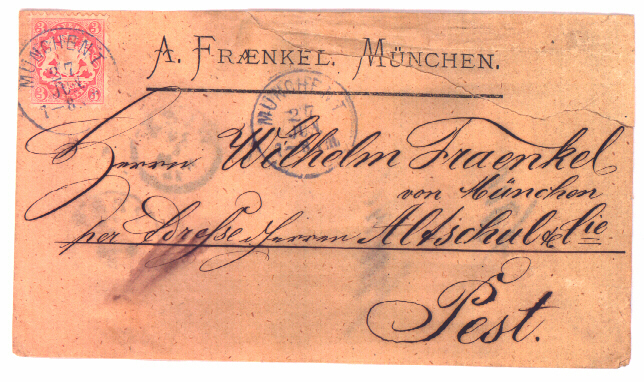 A. FRÆNKEL. MÜNCHEN.
3 3
3 3
MÜNCHEN I.
27
7-8
MÜNCHEN I
27
Herrn Wilhelm Fraenkel
von München
per Adresse d Herren Altschul & Cie
Pest.